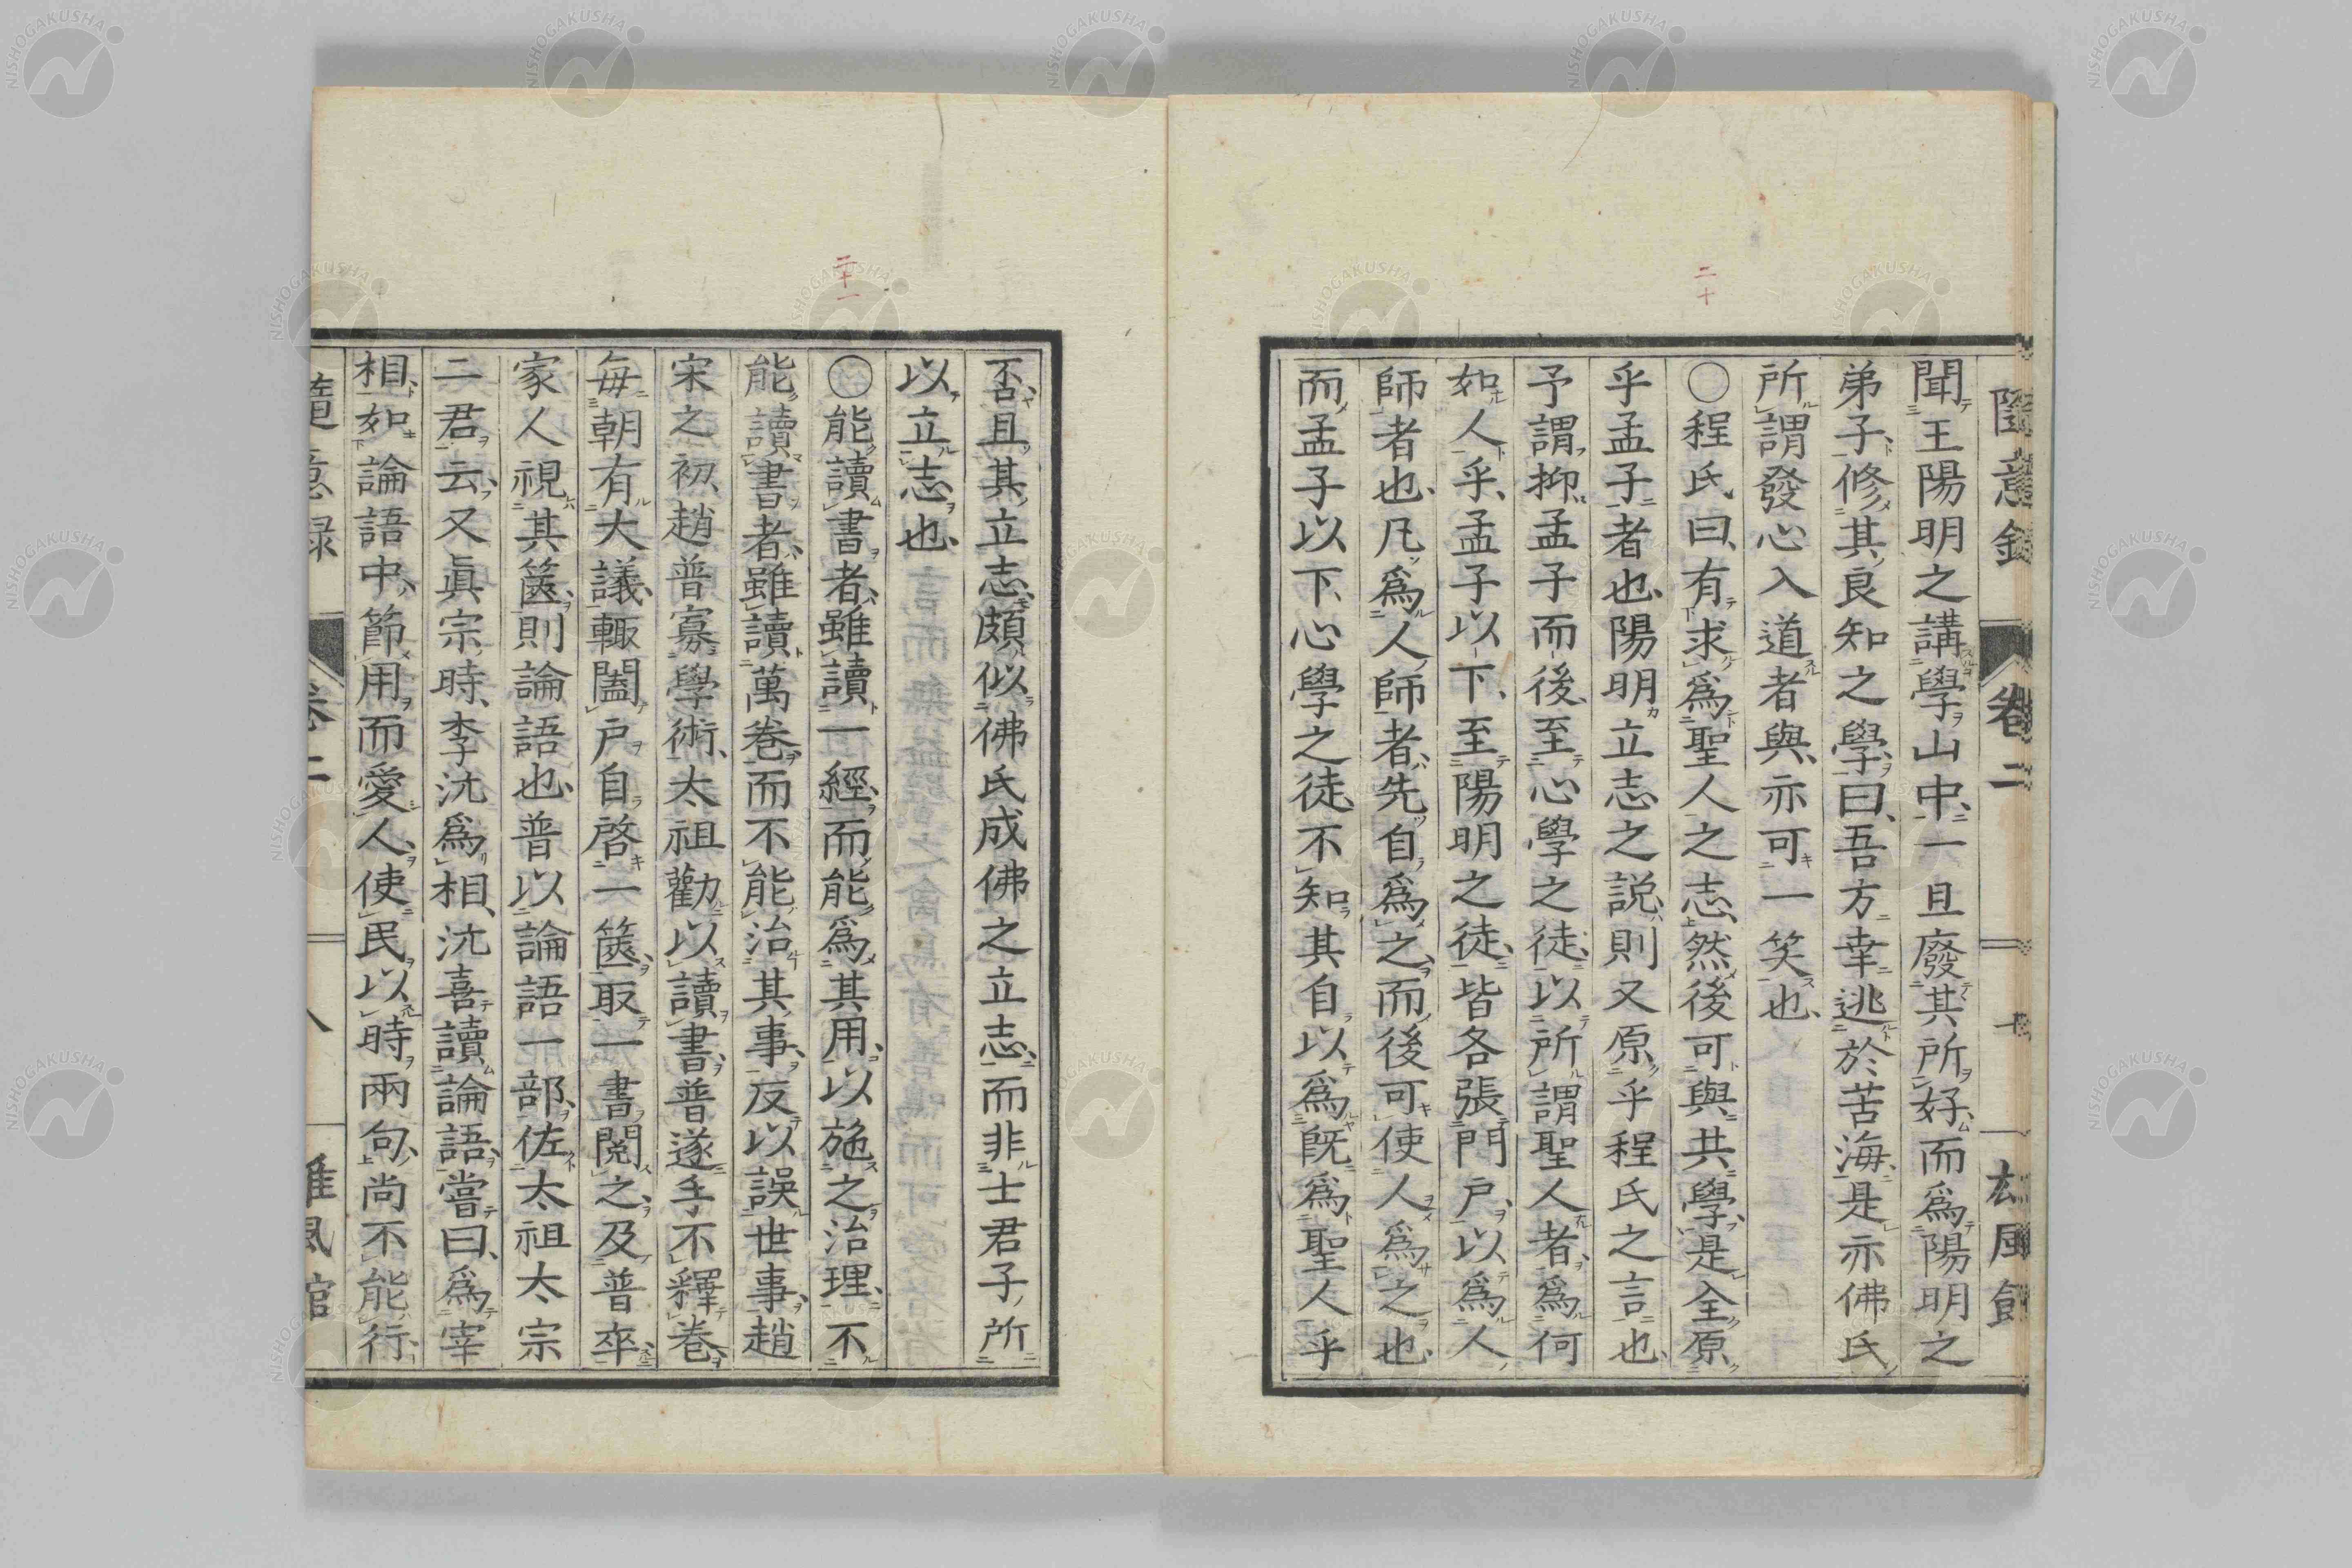 隨意錄 卷二 十 雄風館
聞王陽明之講學山中一旦廢其所好而爲陽明之
弟子修其良知之學曰吾方幸逃於苦海是亦佛氏
所謂發心入道者與亦可一笑也
二十
〇程氏曰有求爲聖人之志然後可與共學是全原
乎孟子者也陽明立志之説則又原乎程氏之言也
予謂抑孟子而後至心學之徒以所謂聖人者爲何
如人乎孟子以下至陽明之徒皆各張門戸以爲人
師者也凡爲人師者先自爲之而後可使人爲之也
而孟子以下心學之徒不知其自以爲既爲聖人乎
否且其立志頗似佛氏成佛之立志而非士君子所
以立志也
二十一
〇能讀書者雖讀一經而能爲其用以施之治理不
能讀書者雖讀萬卷而不能治其事反以誤世事趙
宋之初趙普寡學術太祖勸以讀書普遂手不釋卷
毎朝有大議輙闔戸自啓一篋取一書閲之及普卒
家人視其篋則論語也普以論語一部佐太祖太宗
二君云又眞宗時李沆爲相沆喜讀論語嘗曰爲宰
相如論語中節用而愛人使民以時兩句尚不能行
隨意録 卷二 八 雄風館
NISHOGAKUSHA